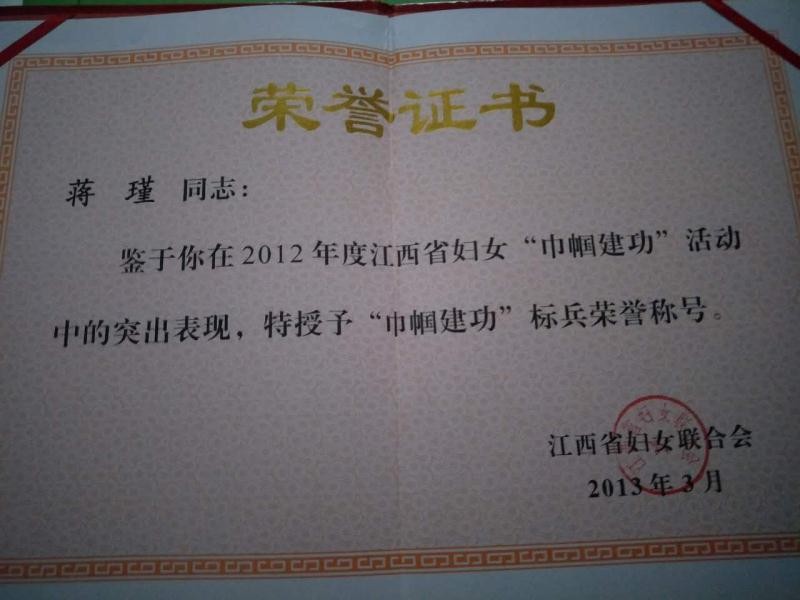 荣誉证书
蒋 瑾 同志：
鉴于你在2012年度江西省妇女“巾帼建功”活动
中的突出表现，特授予“巾帼建功”标兵荣誉称号。
江西省妇女联合会
2013年3月